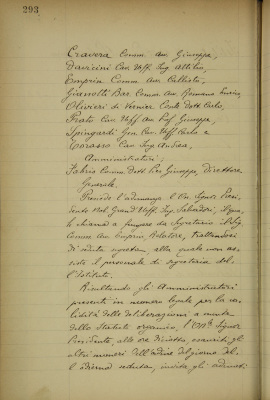 293
Cravera Comm. Avv. Giuseppe,
Davicini Cav. Uff. Ing. Attilio,
Emprin Comm. Avv. Callisto,
Gianolti Bar. Comm. Avv. Romano
Olivieri di Vernier Conte Dott. Carlo,
Prato Cav. Uff. Avv. Prof. Giuseppe,
Spingardi Gen. Cav. Uff. Carlo e
Corasso Cav. Ing. Andrea,
Amministratori;
Fabris Comm. Dott. Pier Giuseppe, Direttore
Generale.
Presiede l'adunanza l'On. Signor Presi-
dente Nob. Grand'Uff. Ing. Salvadori, il quale,
e chiama a fungere da Segretario il Sig.
Comm. Avv. Emprin Relatore, trattandosi
di seduta segreta, alla quale non as-
siste il personale di segreteria del-
l'Istituto.
Risultando gli Amministratori
presenti in numero legale per la va-
lidità delle deliberazioni a mente
dello Statuto organico, l'On. Signor
Presidente, alle ore diciotto, esauriti gli
altri numeri dell'ordine del giorno del-
l'odierna seduta, invita gli adunati